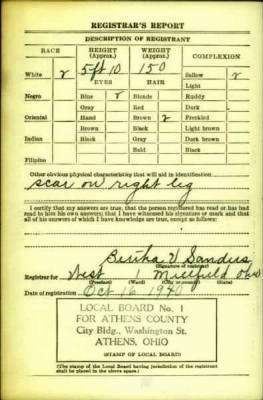 REGISTRAR'S REPORT
DESCRIPTION OF REGISTRANT
RACE HEIGHT (Approx.) WEIGHT (Approx.) COMPLEXION
White ✓ 5 ft 10 150 Sallow ✓
EYES HAIR Light
Negro Blue ✓ Blonde Ruddy
Gray Red Dark
Oriental Hazel Brown ✓ Freckled
Brown Black Light brown
Indian Black Gray Dark brown
Bald Black
Filipino
Other obvious physical characteristics that will aid in identification
scar on right leg
I certify that my answers are true; that the person registered has read or has had
read to him his own answers; that I have witnessed his signature or mark and that
all of his answers of which I have knowledge are true, except as follows:
Bertha V Sanders
(Signature of registrar)
Registrar for West 1 Millfield Ohio
(Precinct) (Ward) (City or county) (State)
Date of registration Oct 16 1940
LOCAL BOARD No. 1
FOR ATHENS COUNTY
City Bldg., Washington St.
ATHENS, OHIO
(STAMP OF LOCAL BOARD)
(The stamp of the Local Board having jurisdiction of the registrant
shall be placed in the above space.)